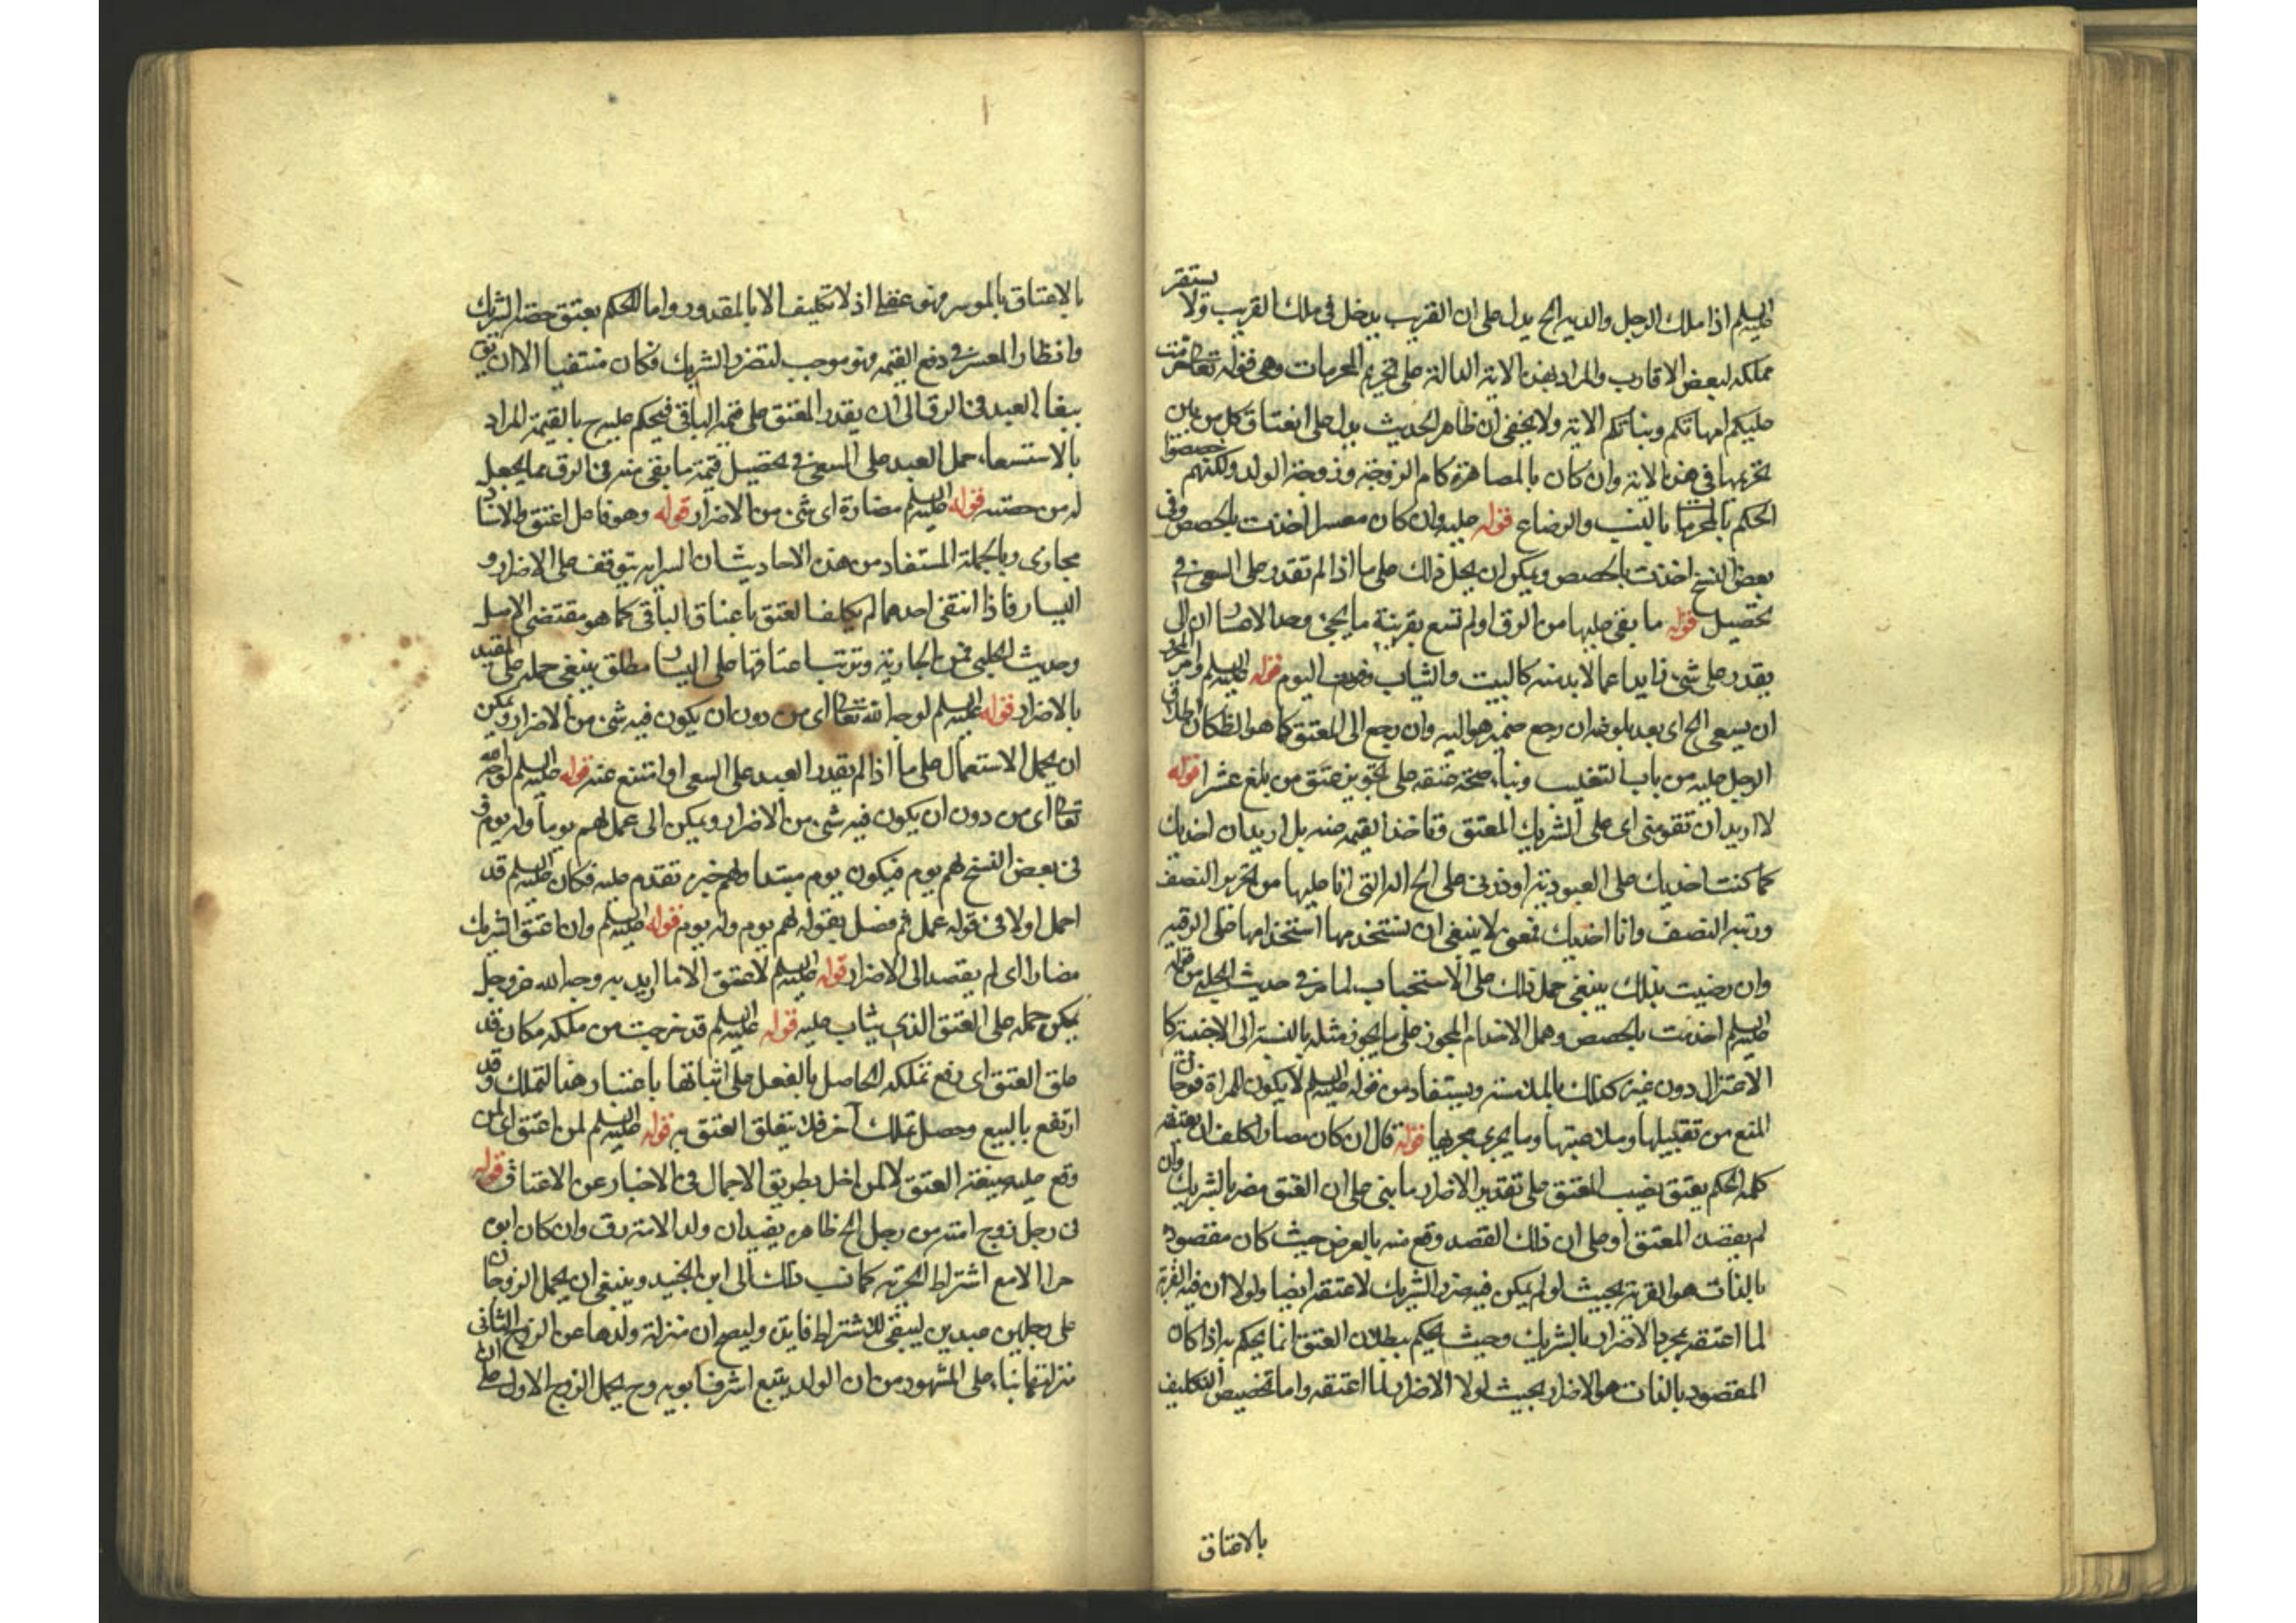 عليه السلم اذا ملك الرجل والديه الخ يدل على ان القريب يدخل في ملك القريب ولا يستقر
تملكه لبعض الاقارب والمراد بهذه الاية الدالة على تحريم المحرمات وهى قوله تعالى حرمت
عليكم امهاتكم وبناتكم الاية ولا يخفى ان ظاهر الحديث يدل على انعتاق كل من
تحريمها في هذه الاية وان كان بالمصاهرة كام الزوجة وزوجة الولد ولكنهم خصصوا
الحكم بالمحرمات بالنسب والرضاع قوله عليه وان كان معسرا اخذت بالحصص وفى
بعض النسخ اخذت بالحصص ويمكن ان يحمل ذلك على ما اذا لم تقدر على السعى في
تحصيل قوله ما بقى عليها من الرق او لم تسع بقرينة ما يجئ وحد الاعسار ان لا
يقدر على شئ زايدا عما لابد منه كالبيت والثياب وقوت اليوم قوله عليه السلم
ان يسعى الخ اى بعد بلوغه ان رجع ضميره هو اليه وان رجع الى المعتق كما هو الظ كان اطلاق
الرجل عليه من باب التغليب وبناء صحة عتقه على تجويز عتق من بلغ عشرا قوله
لا اريد ان تقومنى اى على الشريك المعتق وتاخذ القيمة منه بل اريد ان اخدمك
كما كنت اخدمك على العبودية او ذرنى على الحالة التى انا عليها من تحرير النصف
ورقية النصف وانا اخدمك قوله لا ينبغى ان تستخدمها استخدامها على الرقية
وان رضيت بذلك ينبغى حمل ذلك على الاستحباب لما مر في حديث الحلبى من قوله
عليه السلم اخذت بالحصص وحمل الاخدام المجوز على ما يجوز مثله بالنسبة الى الاجنبية كا
الاعتزال دون غيره كذلك بالملامسة ويستفاد من قوله عليه السلم لا يكون للمراة فرجان
المنع من تقبيلها وملاعبتها وما يجرى مجريها قوله قال ان كان مضارا كلف ان يعتقه
كله الحكم بعتق نصيب المعتق على تقدير الاضرار ما بنى على ان العتق مضر بالشريك وان
لم يقصده المعتق او على ان ذلك القصد وقع منه بالعرض حيث كان مقصوده
بالذات هو القربة بحيث لو لم يكن فيه ضرر الشريك لاعتقه ايضا ولولا ان فيه القربة
لما اعتقه بمجرد الاضرار بالشريك وحيث يحكم ببطلان العتق انما يحكم به اذا كان
المقصود بالذات هو الاضرار بحيث لولا الاضرار لما اعتقه واما تخصيص التكليف
بالاعتاق
بالاعتاق بالموسر فهو عقلى اذ لا تكليف الا بالمقدور واما الحكم بعتق حصة الشريك
وانظار المعسر في دفع القيمة فهو موجب لتضرر الشريك فكان منتفيا الا ان يق
ببقاء العبد في الرق الى ان يقدر المعتق على قيمة الباقى فيحكم عليه ح بالقيمة المراد
بالاستسعاء حمل العبد على السعى في تحصيل قيمة ما بقى منه في الرق مما يجعل
له من حصته قوله عليه السلم مضارة اى شئ من الاضرار قوله وهو فاعل اعتق والاسناد
مجازى وبالجملة المستفاد من هذه الاحاديث ان السراية يتوقف على الاضرار و
اليسار فاذا انتفى احدهما لم يكلف المعتق باعتاق الباقى كما هو مقتضى الاصل
وحديث الحلبى في الجارية وترتب اعتاقها على اليسار مطلق ينبغى حمله على المقيد
بالاضرار قوله عليه السلم لوجه الله تعالى اى من دون ان يكون فيه شئ من الاضرار ويمكن
ان يحمل الاستعمال على ما اذا لم يقدر العبد على السعى او امتنع عنه قوله عليه السلم لوجه الله
تعالى اى من دون ان يكون فيه شئ من الاضرار ويمكن الى عمل لهم يوما وله يوم
في بعض النسخ لهم يوم فيكون يوم مبتدا ولهم خبره تقدم عليه فكان عليه السلم قد
اجمل اولا في قوله عمل ثم فصل بقوله لهم يوم وله يوم قوله عليه السلم وان اعتق الشريك
مضارا اى لم يقصد الى الاضرار قوله عليه السلم لا عتق الا ما اريد به وجه الله عز وجل
يمكن حمله على العتق الذى يثاب عليه قوله عليه السلم قد خرجت من ملكه فكان قد
علق العتق اى رفع تملكه الحاصل بالفعل على اتيانها باعتبار هذا التملك وقد
ارتفع بالبيع وحصل تملك آخر فلا يتعلق العتق به قوله عليه السلم لمن اعتق اى لمن
وقع عليه صيغة العتق لا لمن اخل بطريق الاجمال في الاخبار عن الاعتاق قوله
في رجل زوج امته من رجل الخ ظاهره يفيد ان ولد الامة رق وان كان ابوه
حرا الا مع اشتراط الحرية كما نسب ذلك الى ابن الجنيد وينبغى ان يحمل الزوجان
على رجلين عبدين ليبقى للاشتراط فايدة وليصح ان منزلة ولدها من الزوج الثانى
منزلتها بناء على المشهور من ان الولد يتبع اشرف ابويه وح يحمل الزوج الاول على